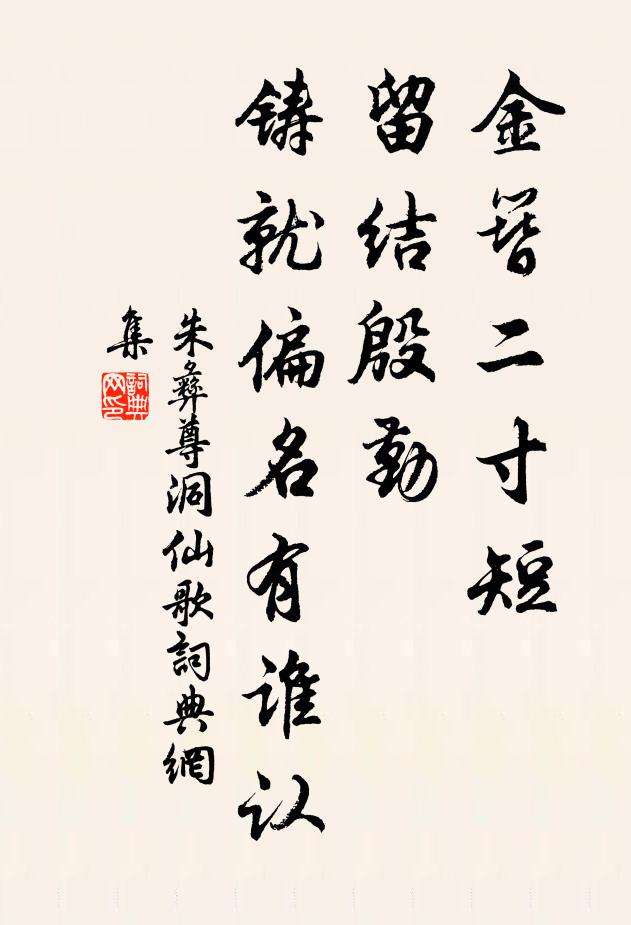 金簪二寸短
留结殷勤
铸就偏名有谁认
朱彝尊洞仙歌詞典網
集
詞典
网印